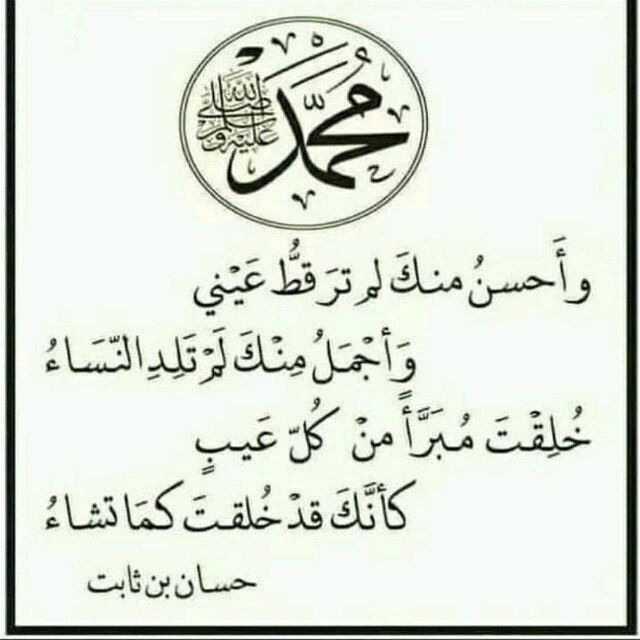 محمد صلى الله عليه وسلم
وأَحسنُ منكَ لم ترَ قطُّ عَيْني
وَأجْمَلُ مِنْكَ لَمْ تَلِدِ النّسَاءُ
خُلِقْتَ مُبَرَّأً منْ كُلّ عَيبٍ
كأنَّكَ قدْ خُلقتَ كمَا تشاءُ
حسان بن ثابت